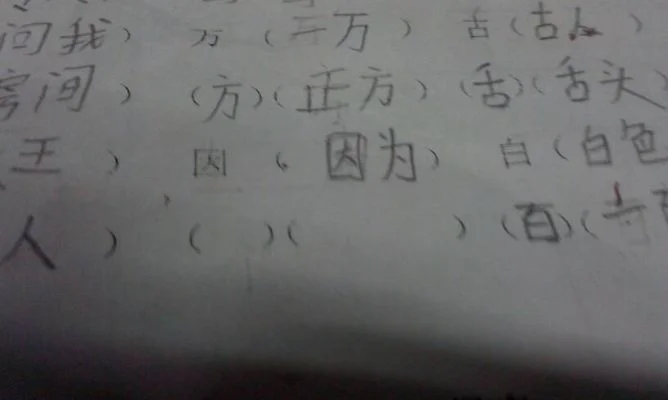 问我） 万（千万） 古（古人）
房间） （方）（正方）（舌）（舌头
王） 因（因为） 白（白色
人） （ ）（ ）（百）（